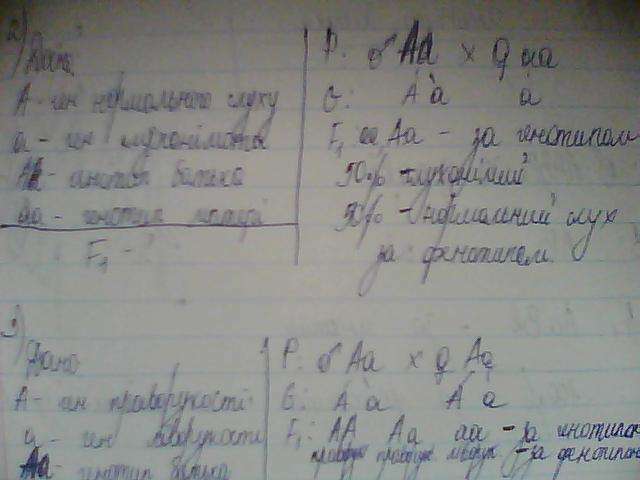 2) Дано:
А - ген нормального слуху
а - ген глухонімоти
Аа - генотип батька
аа - генотип матері
F₁ - ?
P: ♂ Аа × ♀ аа
G: А а а
F₁ аа, Аа - за генотипом
50% - глухонімий
50% - нормальний слух
за фенотипом.
3) Дано
А - ген праворукості
а - ген ліворукости
Аа - генотип батька
P: ♂ Аа × ♀ Аа
G: А а А а
F₁: АА Аа аа - за генотипом
правору правору - за фенотипом